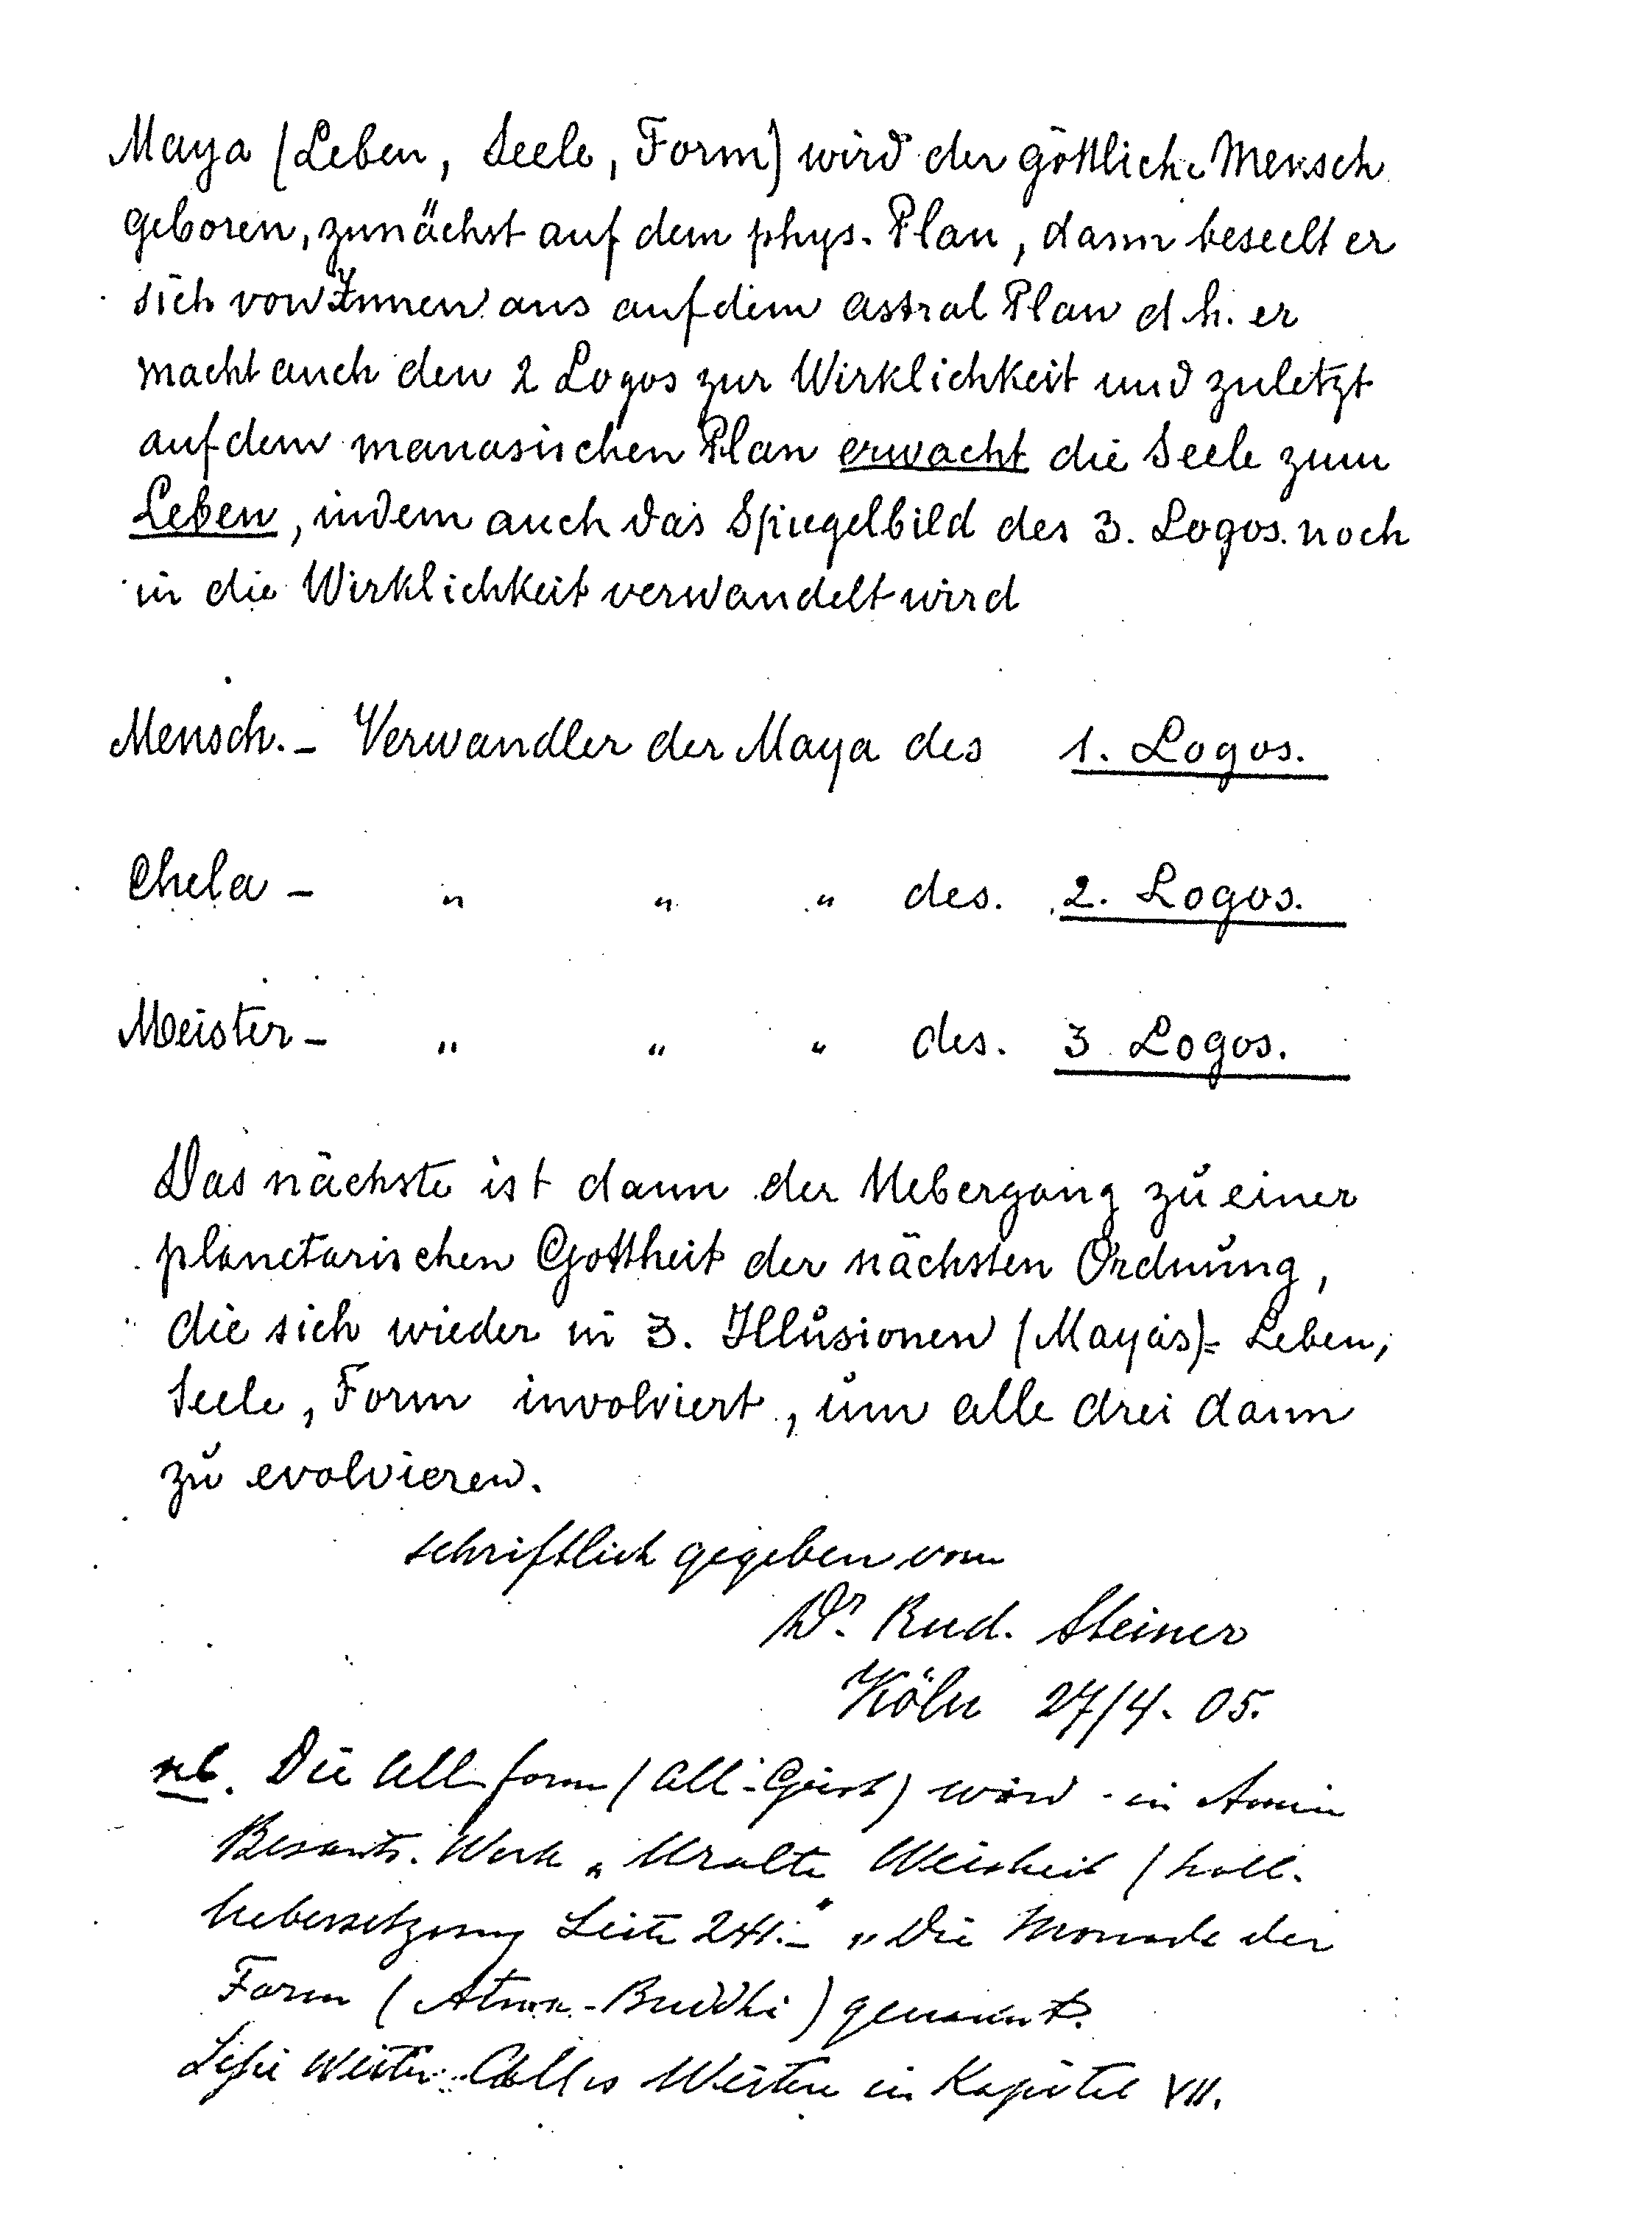 Maya (Leben, Seele, Form) wird der göttliche Mensch
geboren, zunächst auf dem phys. Plan, dann beseelt er
sich von Innen aus auf dem astral Plan d h. er
macht auch den 2 Logos zur Wirklichkeit und zuletzt
auf dem manasischen Plan erwacht die Seele zum
Leben, indem auch das Spiegelbild des 3. Logos. noch
in die Wirklichkeit verwandelt wird
Mensch. - Verwandler der Maya des 1. Logos.
Chela - " " " des. 2. Logos.
Meister - " " " des. 3 Logos.
Das nächste ist dann der Uebergang zu einer
planetarischen Gottheit der nächsten Ordnung,
die sich wieder in 3. Illusionen (Mayas)= Leben,
Seele, Form involviert, um alle drei dann
zu evolvieren.
schriftlich gegeben von
Dr. Rud. Steiner
Köln 27/4. 05.
nb. Die All-form (All-Geist) wird in Annie
Besants. Werk „Uralte Weisheit (holl.
Uebersetzung Seite 241.-" „Die Monade der
Form (Atma-Buddhi) genannt.
Weitere in Kapitel VII.